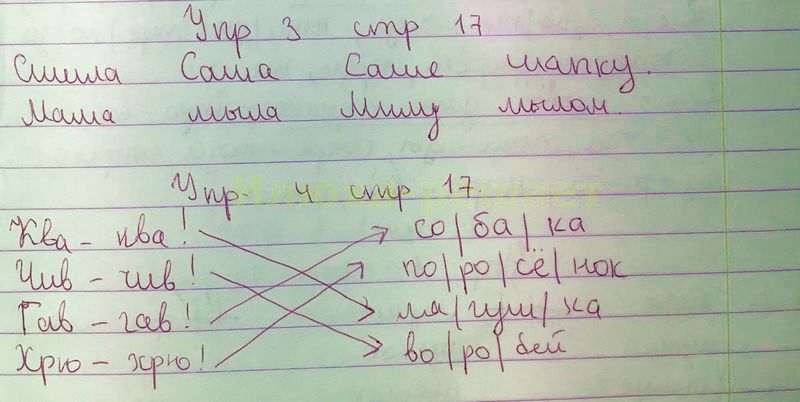 Упр 3 стр 17
Сшила Саша Саше шапку.
Мама мыла Милу мылом.
Упр. 4 стр 17.
Ква - ква!
со/ба/ка
Чив - чив!
по/ро/сё/нок
Гав - гав!
ля/гуш/ка
Хрю - хрю!
во/ро/бей